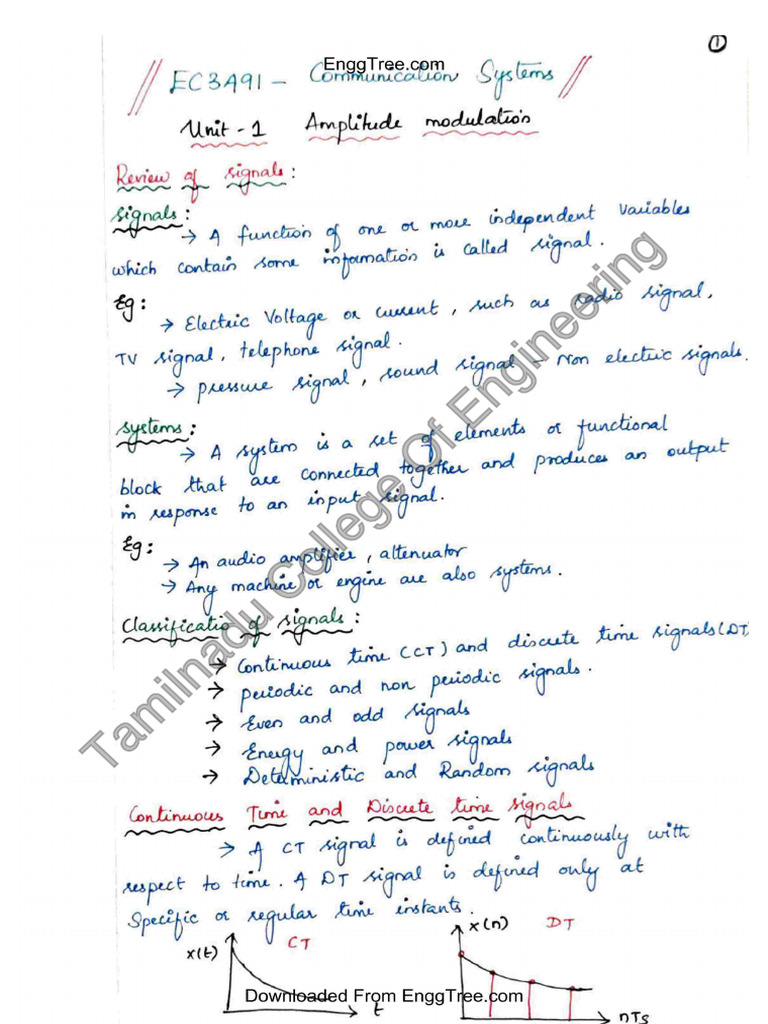 1
EnggTree.com
// EC3491 - Communication Systems //
Unit - 1 Amplitude modulation
Review of signals:
signals:
→ A function of one or more independent variables
which contain some information is called signal.
Eg:
→ Electric Voltage or current, such as radio signal,
TV signal, telephone signal.
→ pressure signal, sound signal - Non electric signals.
systems:
→ A system is a set of elements or functional
block that are connected together and produces an output
in response to an input signal.
Eg:
→ An audio amplifier, attenuator
→ Any machine or engine are also systems.
Classificatio of signals:
→ Continuous time (CT) and discrete time signals (DT)
→ periodic and non periodic signals.
→ Even and odd signals
→ Energy and power signals
→ Deterministic and Random signals
Continuous Time and Discrete time signals
→ A CT signal is defined continuously with
respect to time. A DT signal is defined only at
Specific or regular time instants.
x(t) CT t
x(n) DT nTs
Downloaded From EnggTree.com
Tamilnadu College Of Engineering